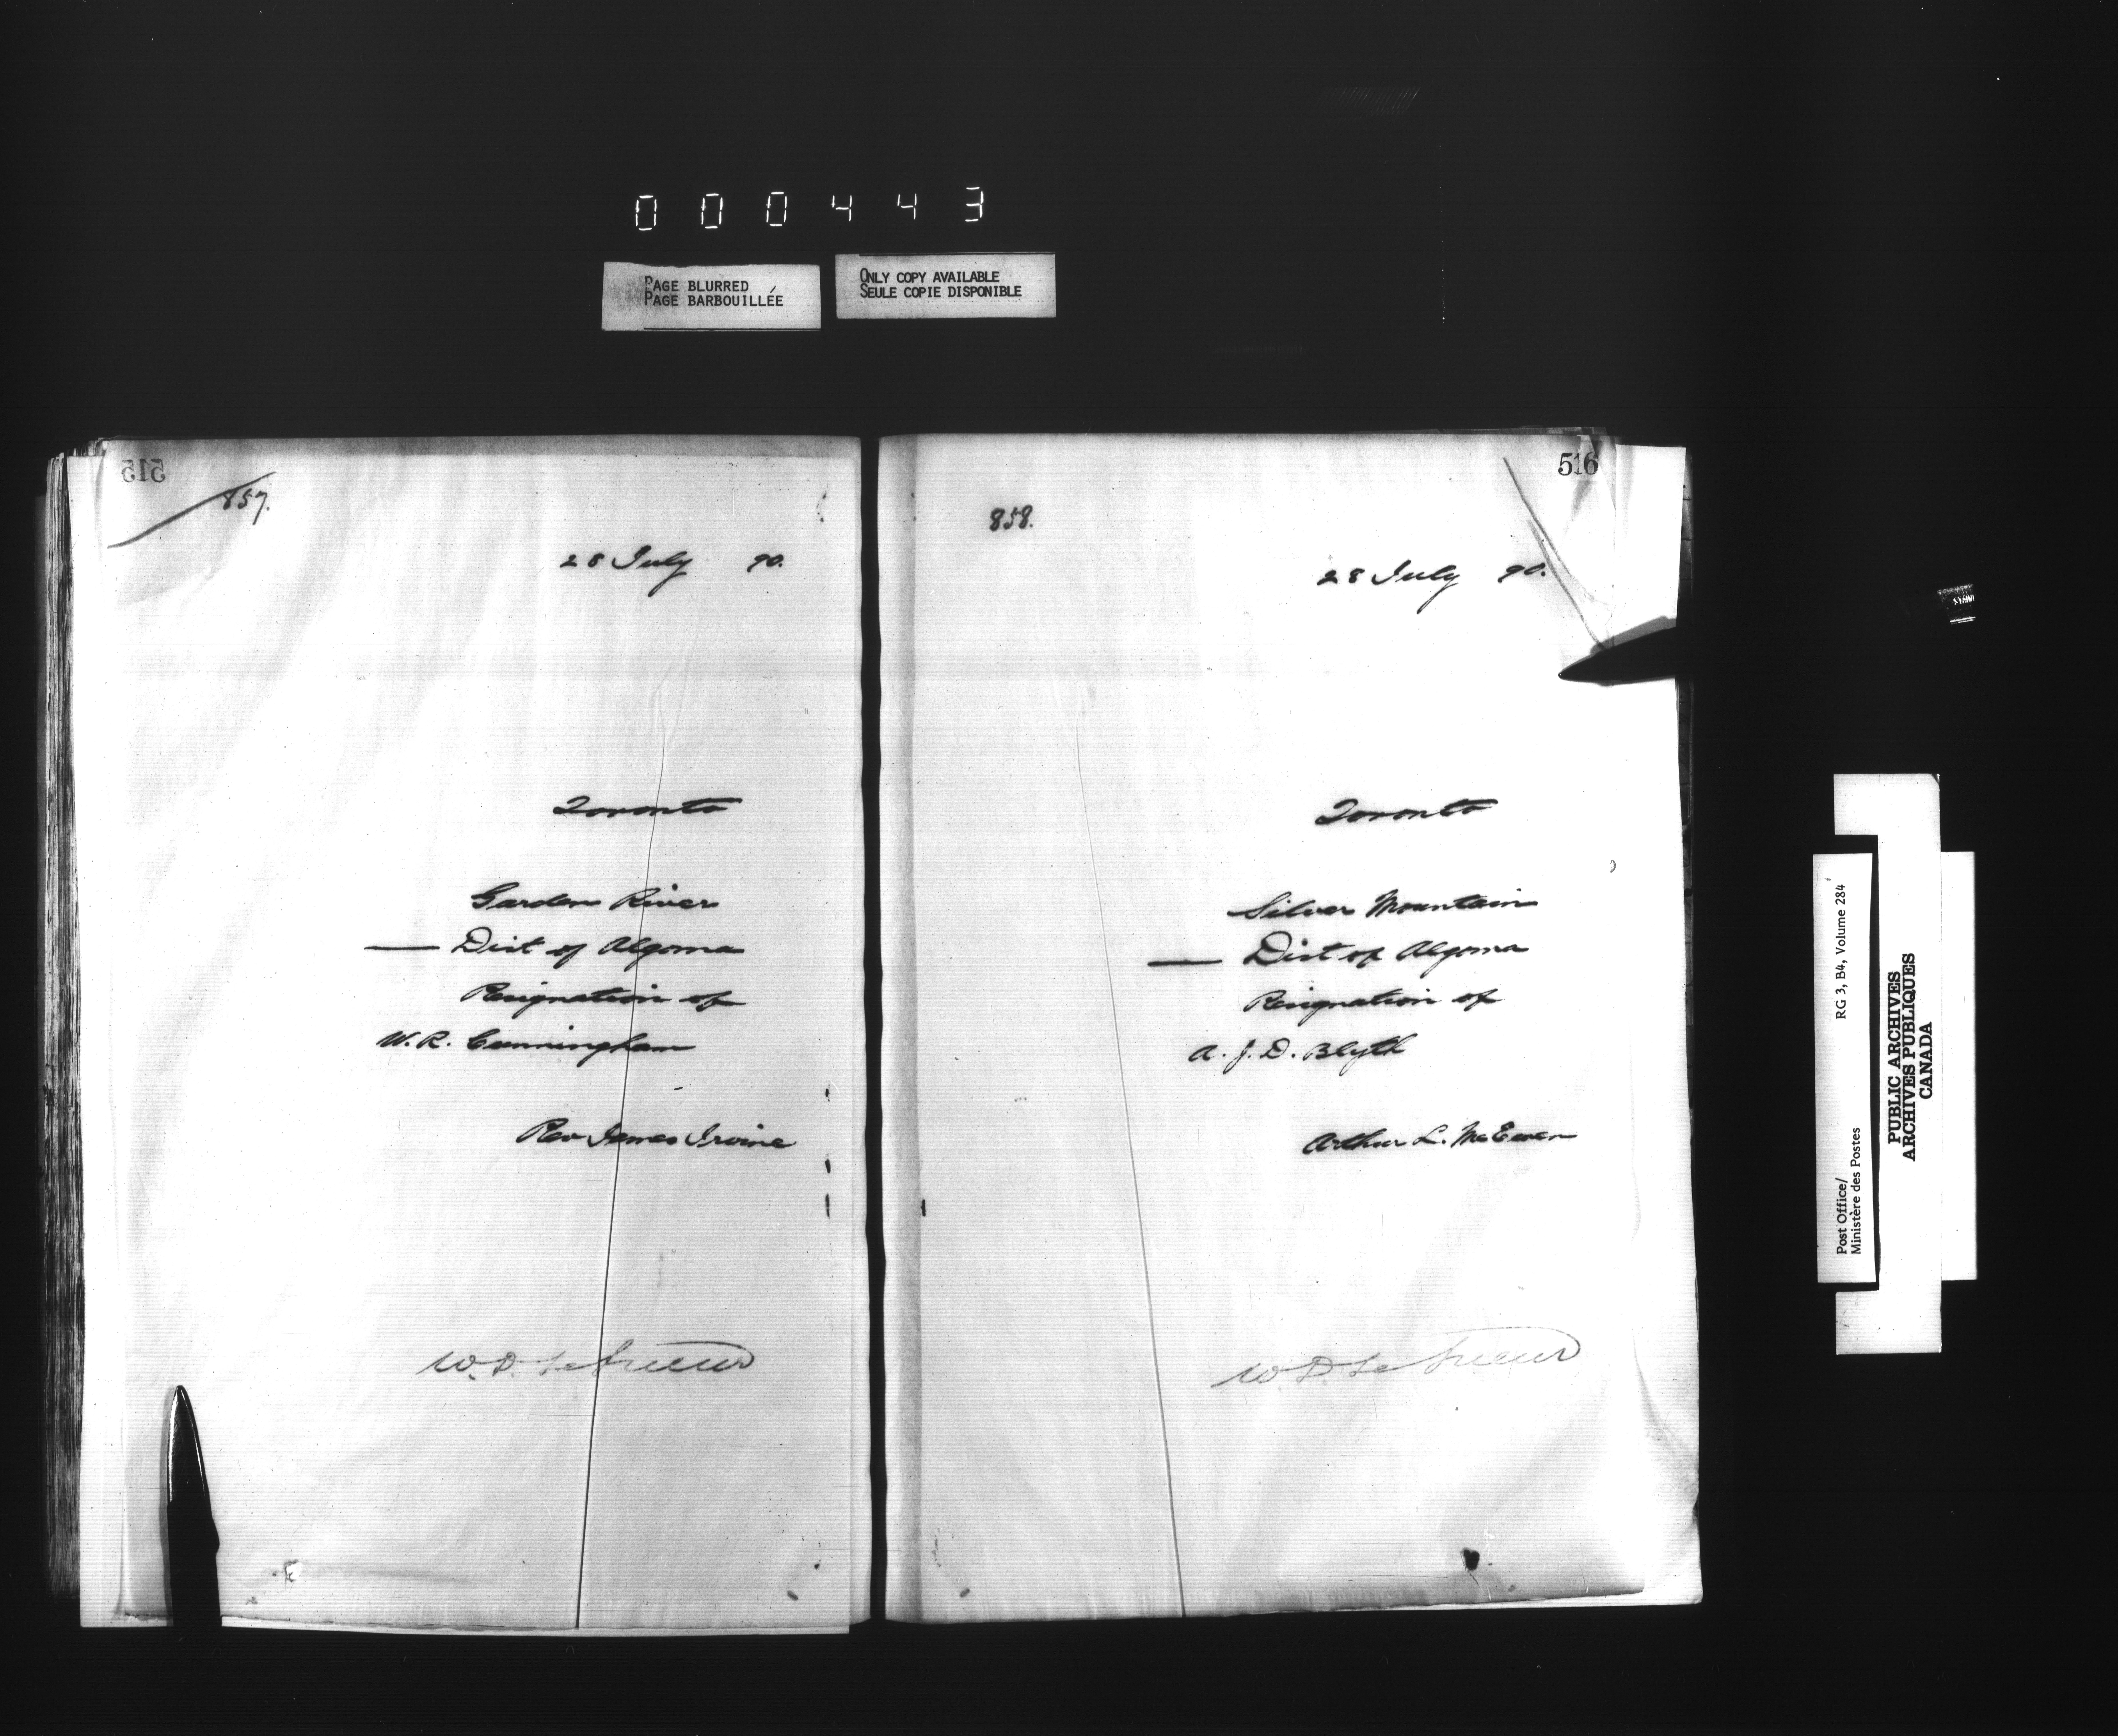 000443
PAGE BLURRED
PAGE BARBOUILLÉE
ONLY COPY AVAILABLE
SEULE COPIE DISPONIBLE
515
857.
28 July 90.
Toronto
Garden River
— Dist of Algoma
Resignation of
W. R. Cunningham
Rev James Irvine
W. D. LeSueur
516
858.
28 July 90.
Toronto
Silver Mountain
— Dist of Algoma
Resignation of
A. J. D. Blyth
Arthur L. McEwen
W. D. LeSueur
Post Office/ RG 3, B4, Volume 284
Ministère des Postes
PUBLIC ARCHIVES
ARCHIVES PUBLIQUES
CANADA